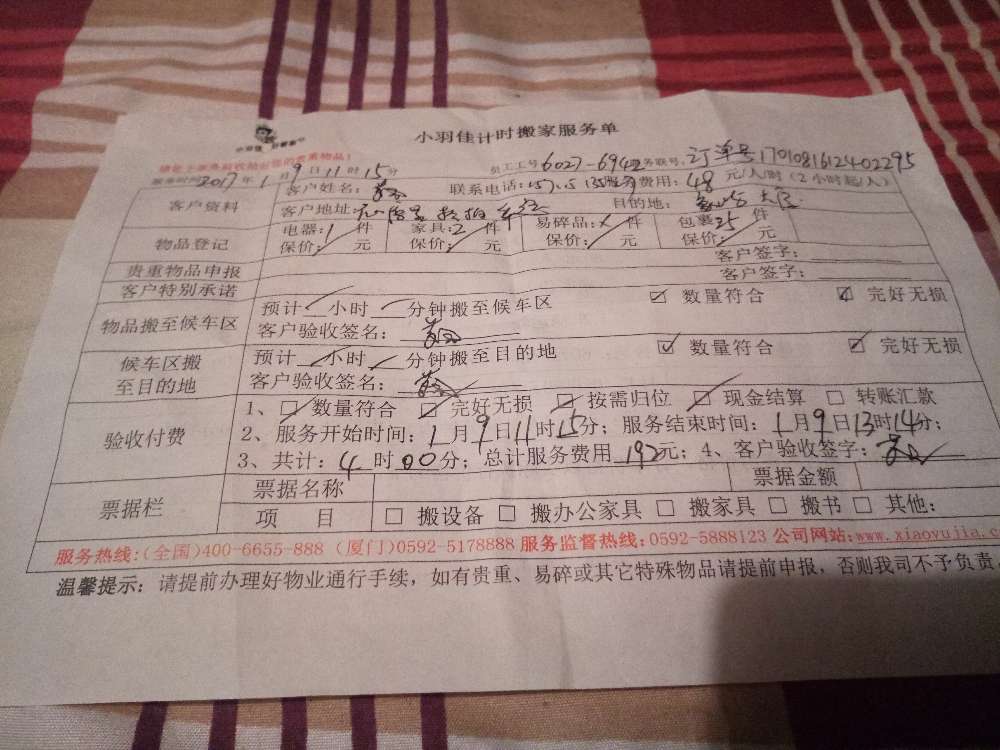 小羽佳计时搬家服务单
员工工号6027-694 服务联号: 订单号17010816122402295
服务时间2017年1月9日11时15分
客户资料
客户姓名: 联系电话: 服务费用: 48元/人/时 (2小时起/人)
客户地址: 目的地:
物品登记
电器: 1件 家具: 2件 易碎品: 件 包裹25件
保价: 元 保价: 元 保价: 元 保价: 元
贵重物品申报 客户签字:
客户特别承诺 客户签字:
物品搬至候车区
预计 小时 分钟搬至候车区 ☑ 数量符合 ☑ 完好无损
客户验收签名:
候车区搬至目的地
预计 小时 分钟搬至目的地 ☑ 数量符合 ☑ 完好无损
客户验收签名:
验收付费
1、☑ 数量符合 ☑ 完好无损 ☑ 按需归位 ☑ 现金结算 □ 转账汇款
2、服务开始时间: 1月9日11时15分; 服务结束时间: 1月9日13时14分;
3、共计: 4时00分; 总计服务费用 192元; 4、客户验收签字:
票据栏
票据名称 票据金额
项 目 □ 搬设备 □ 搬办公家具 □ 搬家具 □ 搬书 □ 其他:
服务热线:(全国)400-6655-888 (厦门)0592-5178888 服务监督热线:0592-5888123 公司网站:www.xiaoyujia.c
温馨提示: 请提前办理好物业通行手续，如有贵重、易碎或其它特殊物品请提前申报，否则我司不予负责。